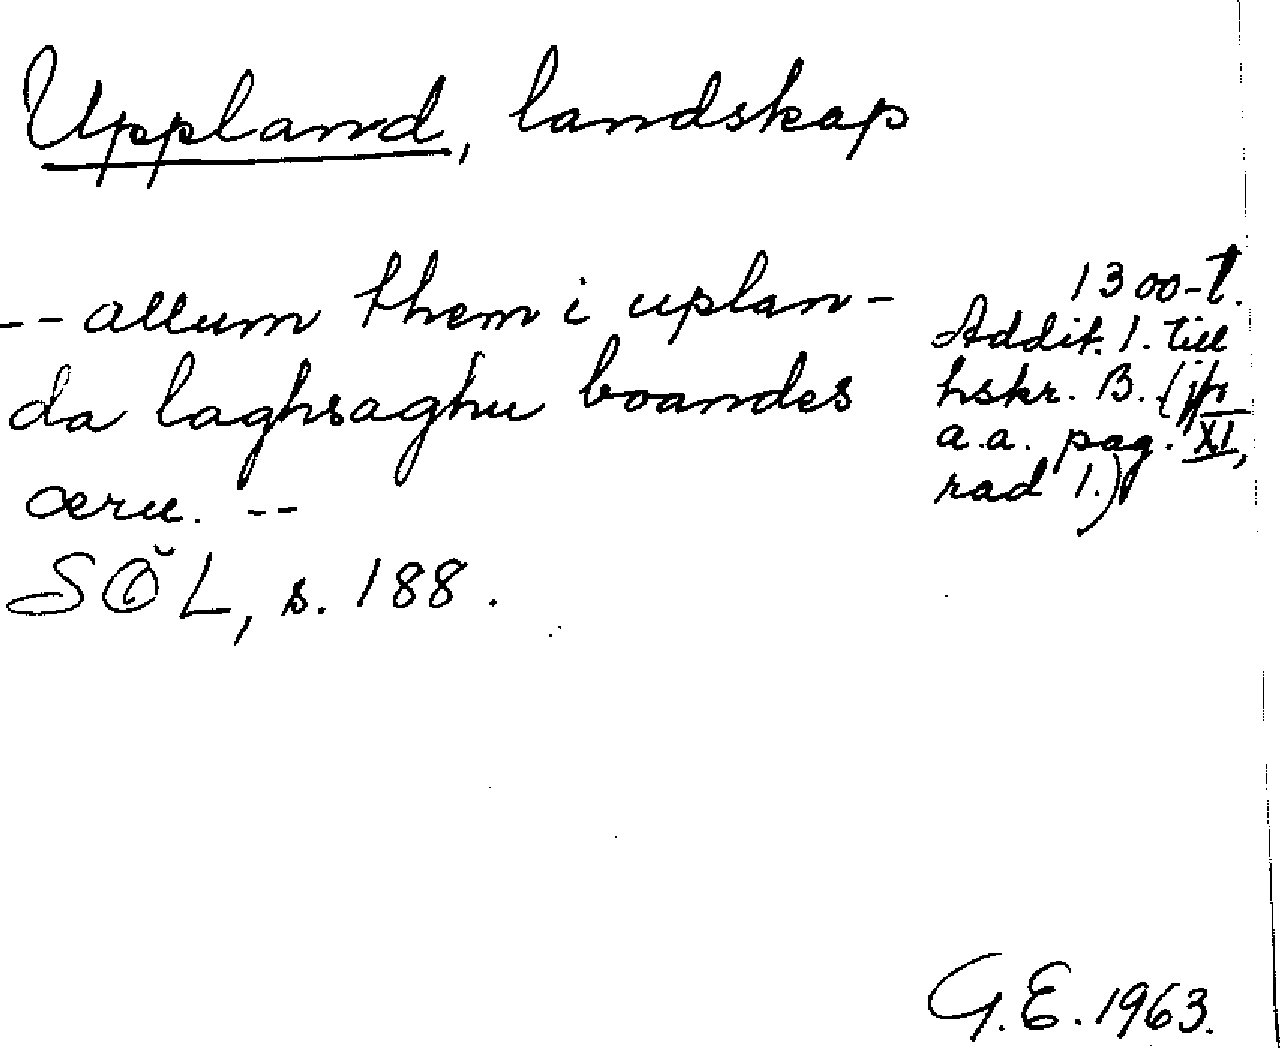 Uppland, landskap
-- allum them i uplan-
da laghsaghu boandes
æru. --
SÖL, s. 188.
1300-t.
Addit. 1. till
hskr. B. (jfr
a.a. pag. XI,
rad 1.)
G.E. 1963.